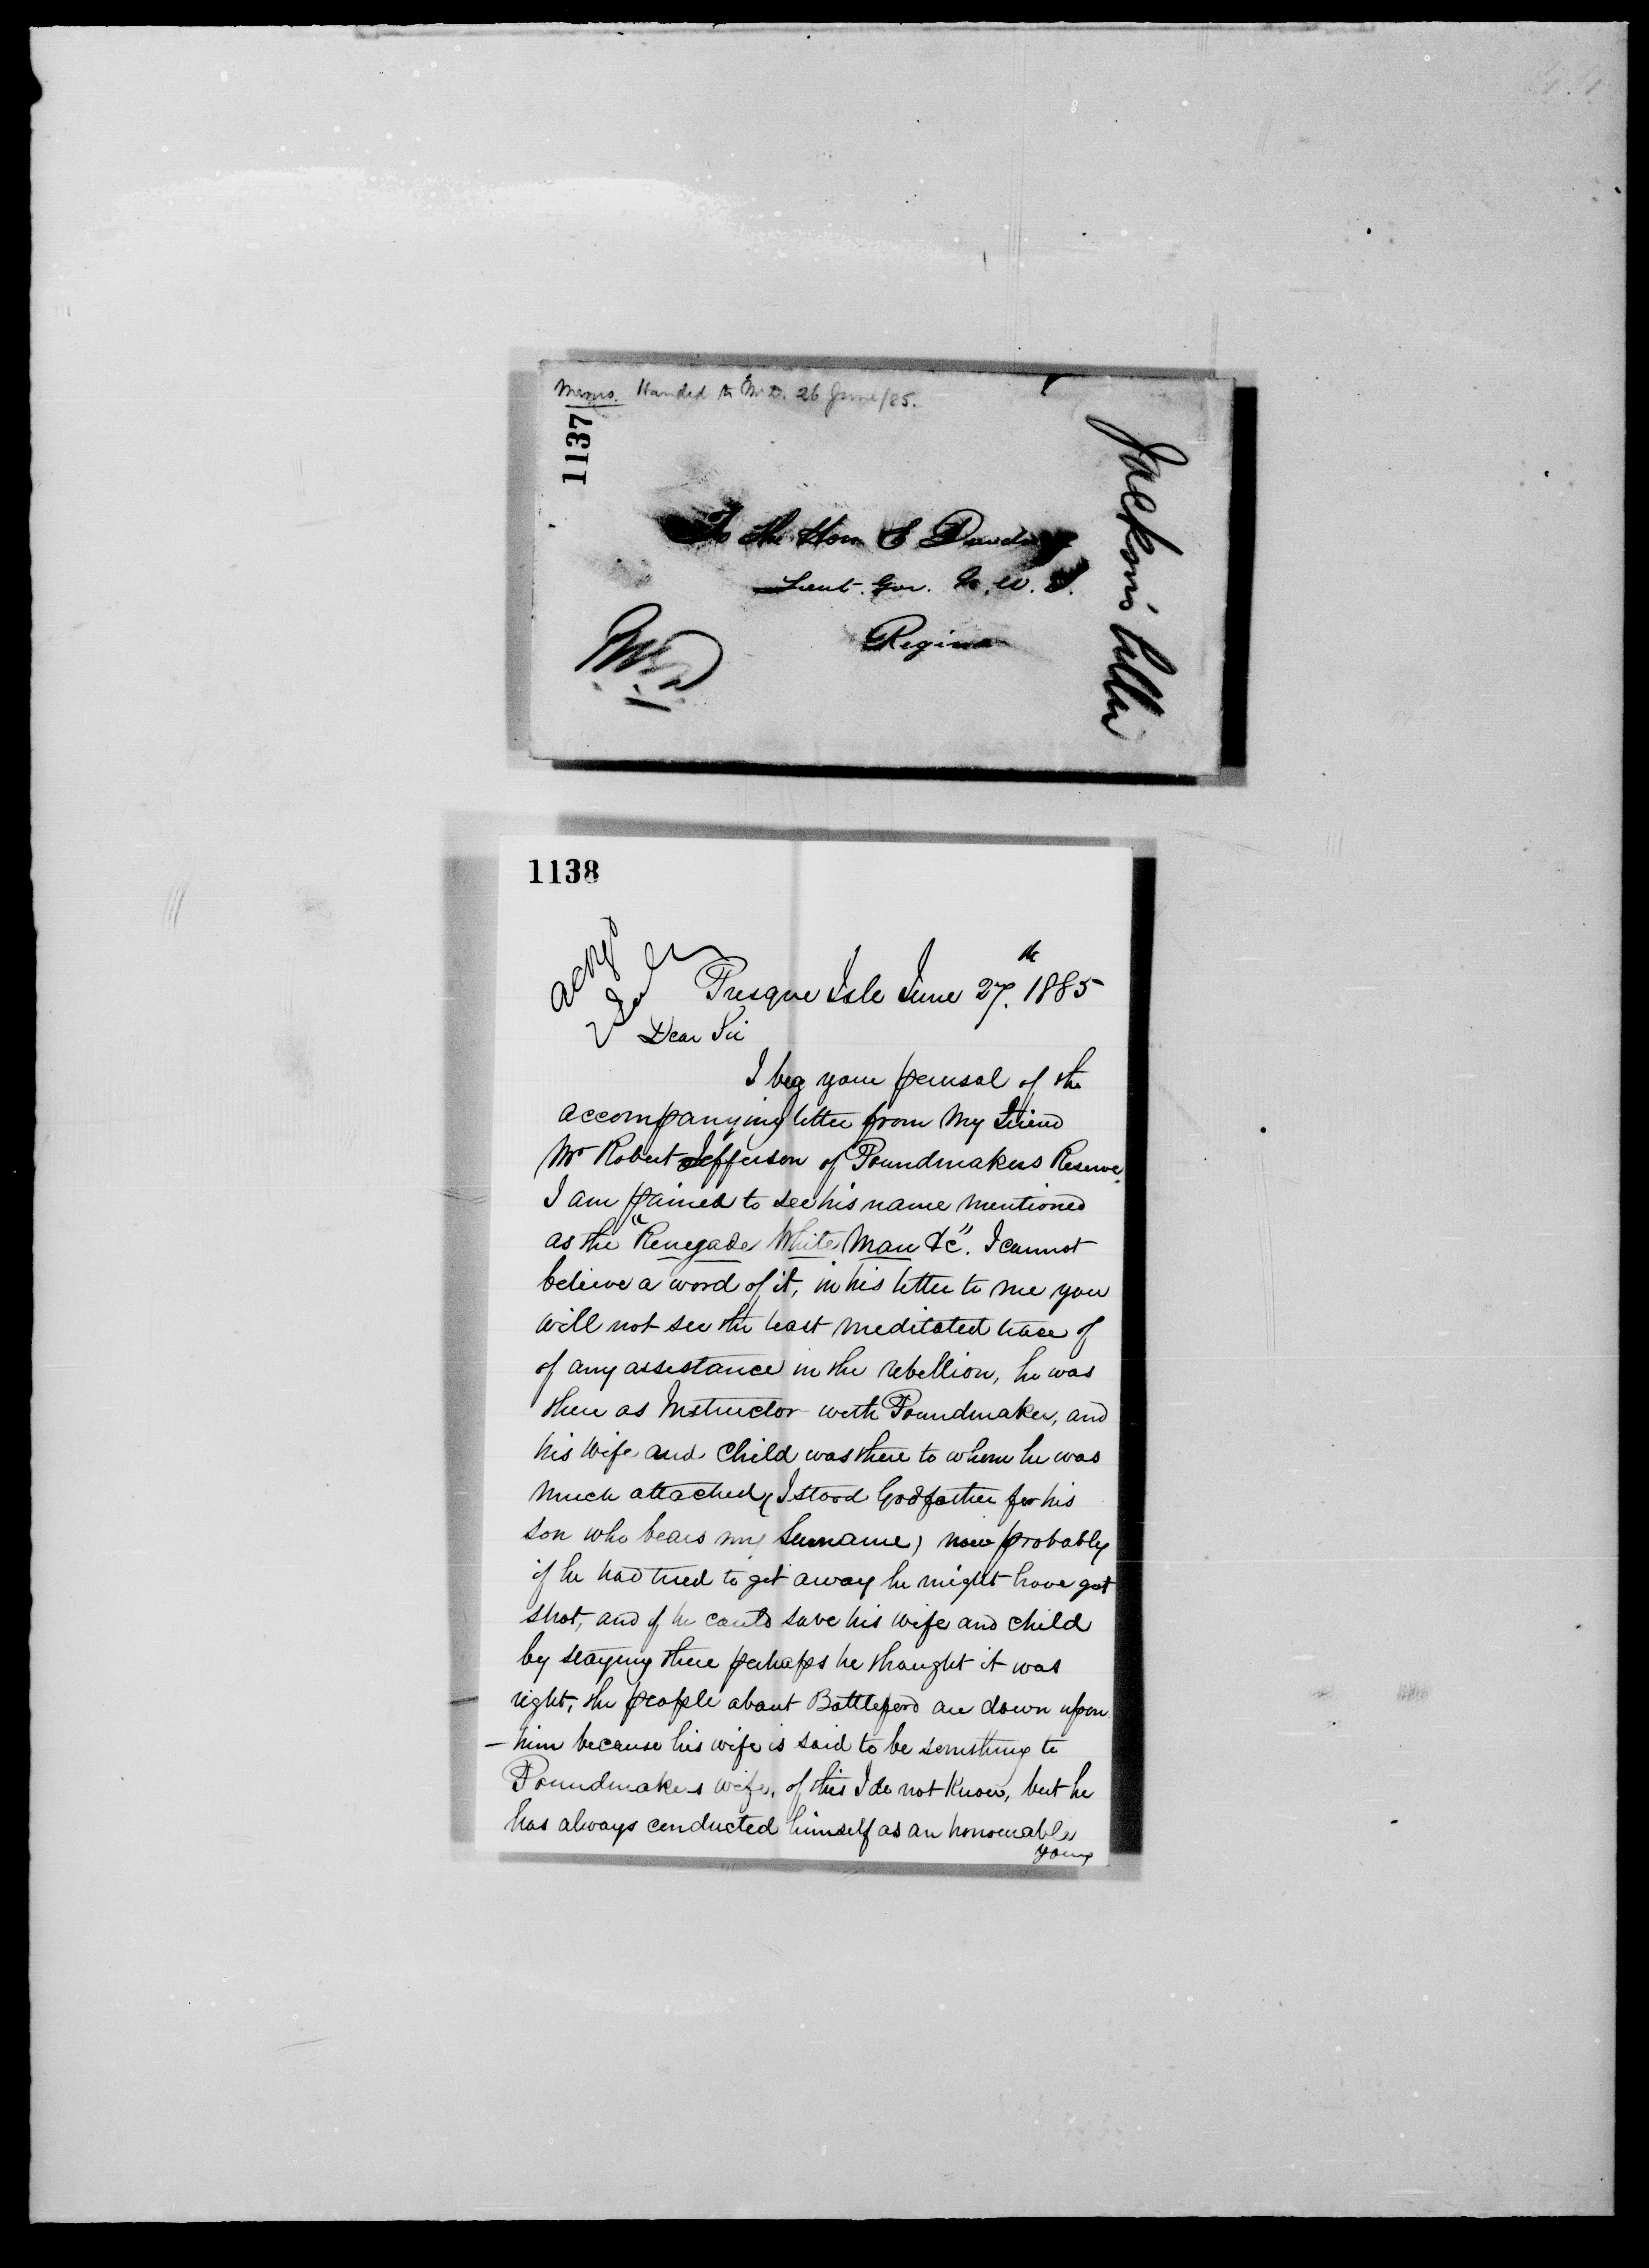 Memo. Handed to Mr D. 26 June/85.
1137
To the Hon E Dewdney
Lieut. Gov. N. W. T.
Regina
Jackson's letter
1138
Ackgd
Presque Isle June 27th. 1885
Dear Sir
I beg your perusal of the
accompanying letter from My Friend
Mr Robert Jefferson of Poundmakers Reserve.
I am pained to see his name mentioned
as the "Renegade White Man &c". I cannot
believe a word of it, in his letter to me you
will not see the least meditated trace of
of any assistance in the rebellion, he was
there as Instructor with Poundmaker, and
his Wife and Child was there to whom he was
much attached, (I stood Godfather for his
son who bears my Surname) now probably
if he had tried to get away he might have got
shot, and if he could save his wife and child
by staying there perhaps he thought it was
right, the people about Battleford are down upon
– him because his wife is said to be something to
Poundmakers wife, of this I do not Know, but he
has always conducted himself as an honourable
young